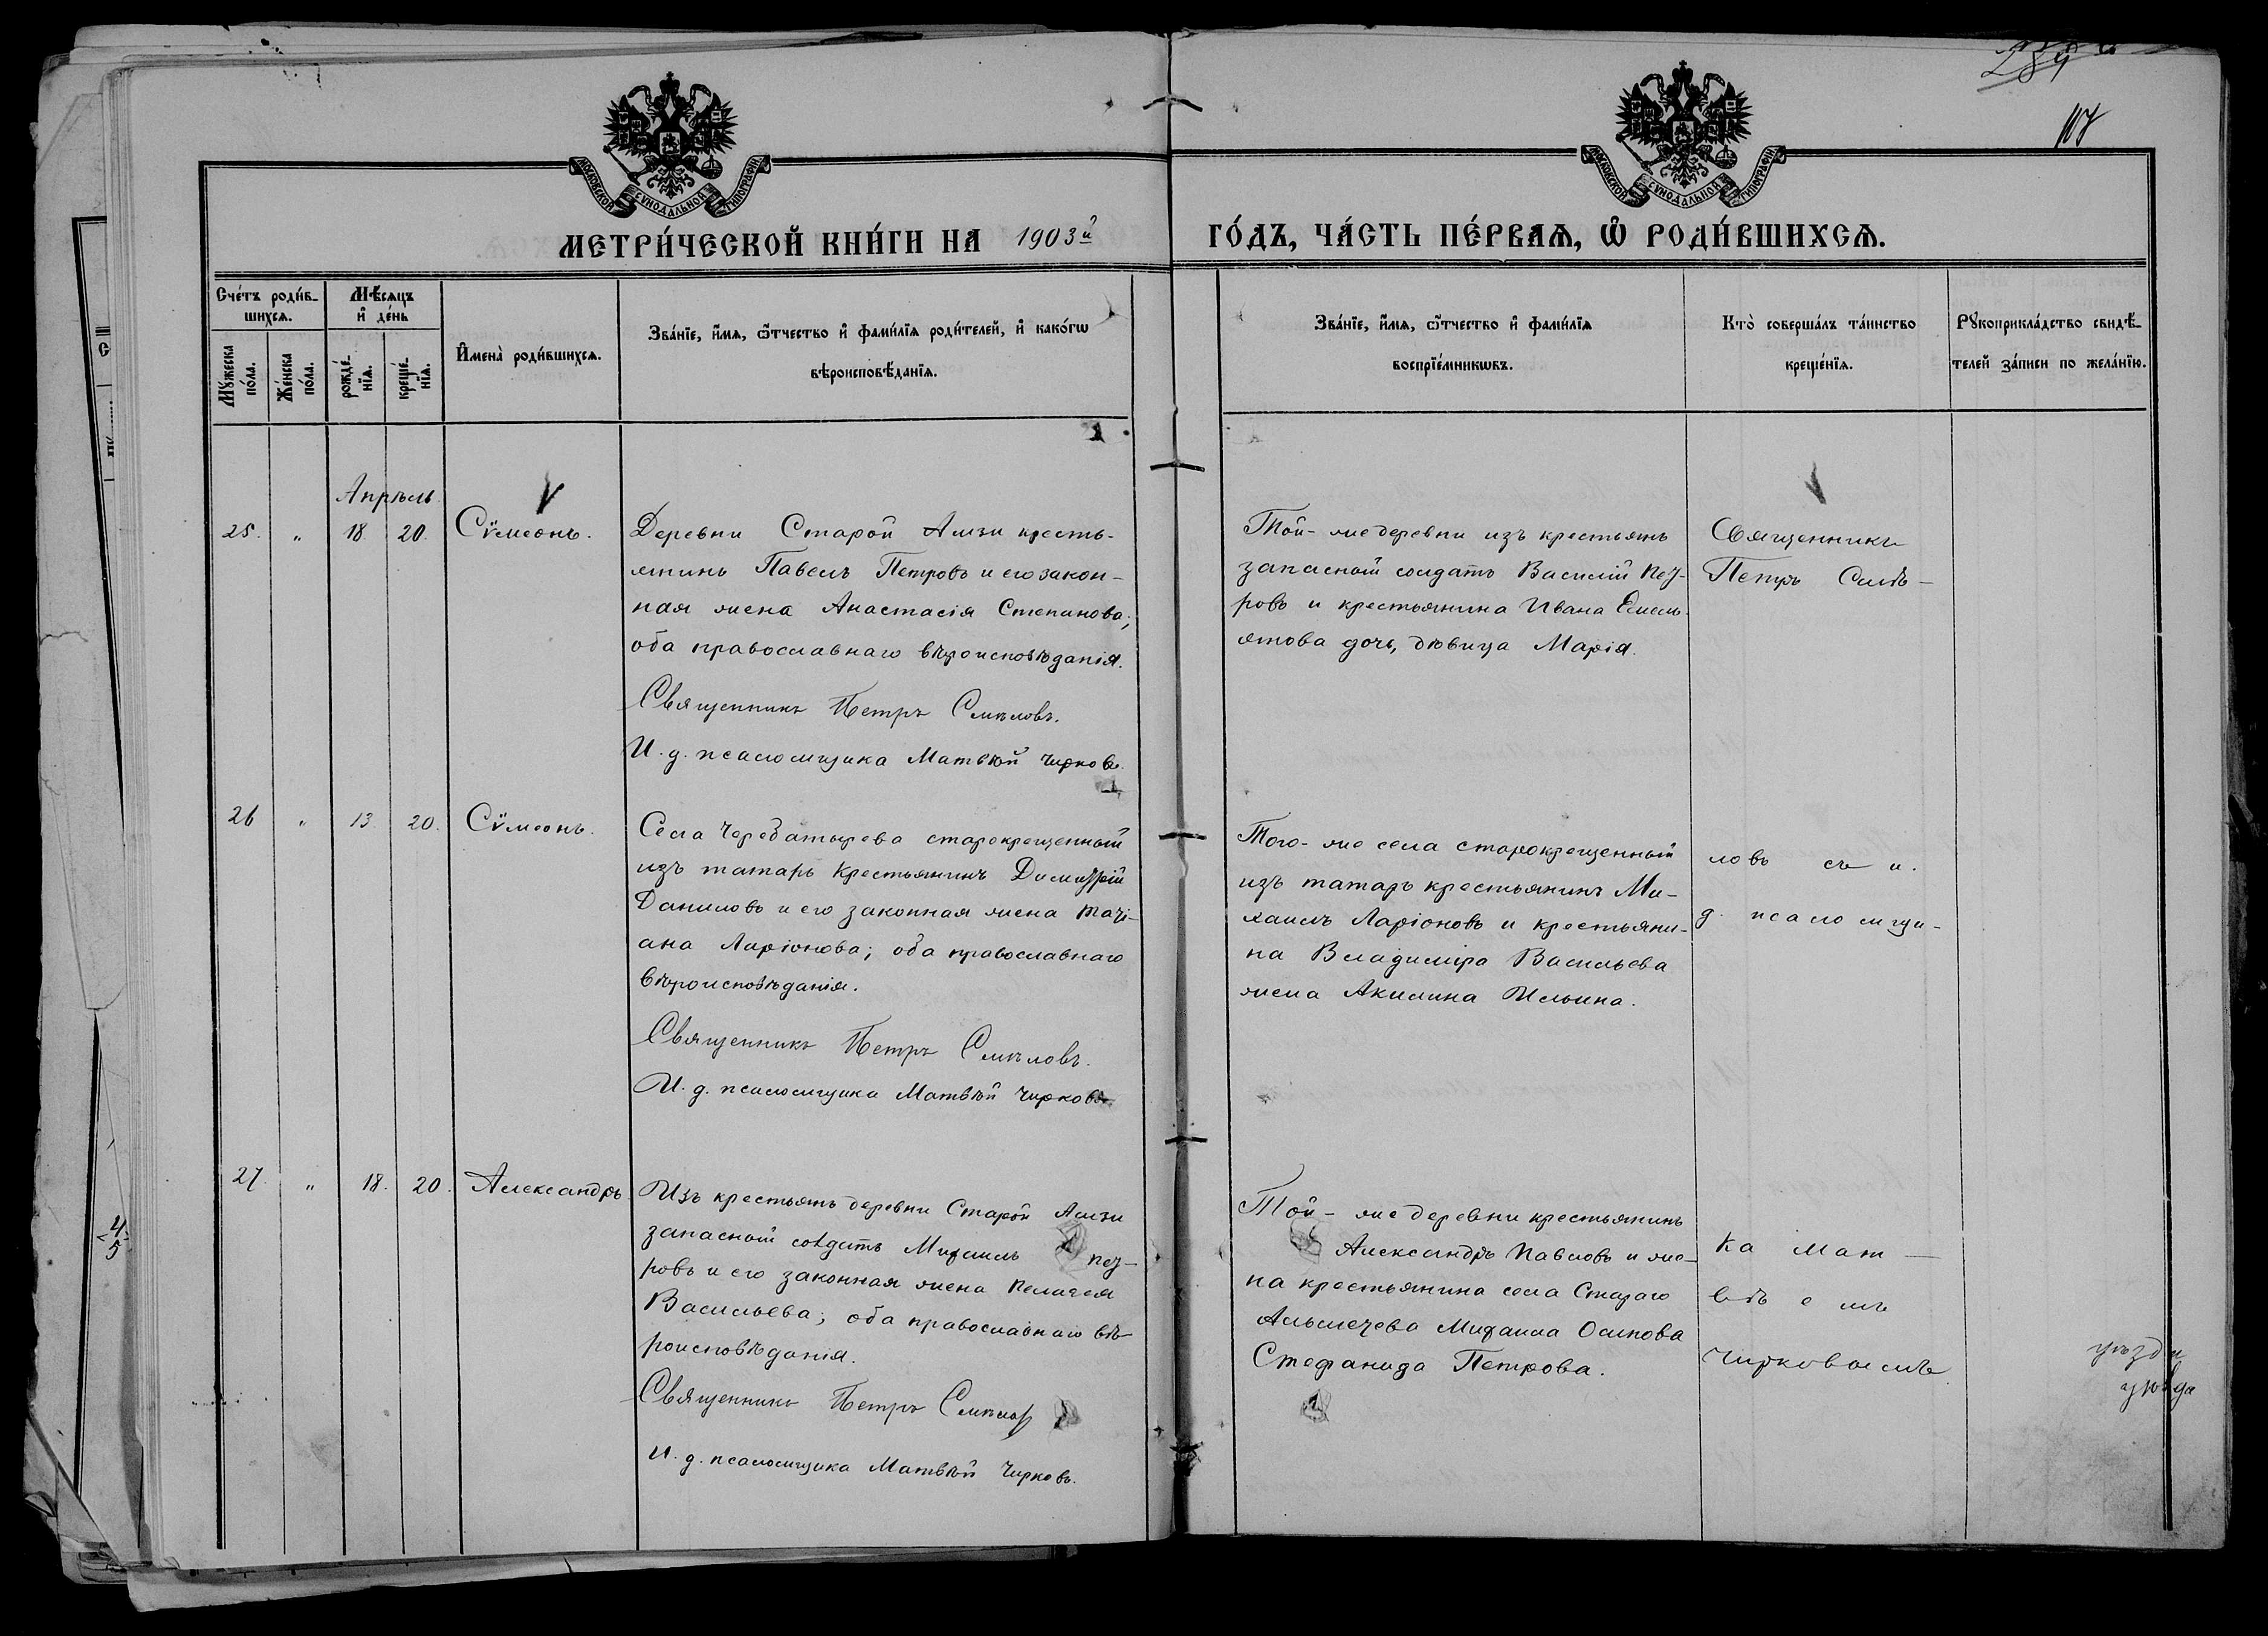 289
117
МОСКОВСКОЙ СѴНОДАЛЬНОЙ ТИПОГРАФІИ
МОСКОВСКОЙ СѴНОДАЛЬНОЙ ТИПОГРАФІИ
МЕТРИ́ЧЕСКОЙ КНИ́ГИ НА 1903й
ГО́ДЪ, ЧА́СТЬ ПЕ́РВАѦ, Ѡ҆ РОДИ́ВШИХСѦ.
Сче́тъ роди́в-
шихсѧ.
Мꙋ́жеска по́ла.
Же́нска по́ла.
Мѣ́сѧцъ
и҆ де́нь
рожде́-
нїѧ.
креще́-
нїѧ.
И҆мена̀ роди́вшихсѧ.
Зва́нїе, и҆́мѧ, ѻ҆́тчество и҆ фами́лїѧ роди́телей, и҆ како́гѡ
вѣроисповѣ́данїѧ.
Зва́нїе, и҆́мѧ, ѻ҆́тчество и҆ фами́лїѧ
воспрїе́мникѡвъ.
Кто̀ соверша́лъ та́инство
креще́нїѧ.
Рꙋкоприкла́дство свидѣ́-
телей за́писи по жела́нїю.
Апрѣль
25. „ 18. 20. Сѷмеонъ.
Деревни Старой Амзи кресть-
янинъ Павелъ Петровъ и его закон-
ная жена Анастасія Степанова;
оба православнаго вѣроисповѣданія.
Священникъ Петръ Смѣловъ.
И. д. псаломщика Матвѣй Чирковъ.
Той-же деревни изъ крестьянъ
запасный солдатъ Василій Пет-
ровъ и крестьянина Ивана Емель-
янова дочь, дѣвица Марія.
Священникъ
Петръ Смѣ-
26 „ 13 20. Сѷмеонъ.
Села Черебатырева старокрещенный
изъ татаръ крестьянинъ Димитрій
Даниловъ и его законная жена Таті-
ана Ларіонова; оба православнаго
вѣроисповѣданія.
Священникъ Петръ Смѣловъ.
И. д. псаломщика Матвѣй Чирковъ
Того-же села старокрещенный
изъ татаръ крестьянинъ Ми-
хаилъ Ларіоновъ и крестьяни-
на Владиміра Васильева
жена Акилина Ильина.
ловъ съ и.
д. псаломщи-
27 „ 18. 20. Александръ.
Изъ крестьянъ деревни Старой Амзи
запасный солдатъ Михаилъ Пет-
ровъ и его законная жена Пелагея
Васильева; оба православнаго вѣ-
роисповѣданія.
Священникъ Петръ Смѣловъ
И. д. псаломщика Матвѣй Чирковъ.
Той-же деревни крестьянинъ
Александръ Павловъ и же-
на крестьянина села Стараго
Альметева Михаила Осипова
Стефанида Петрова.
ка Мат-
вѣемъ
Чирковымъ.
уѣзда
уѣзда
4
5